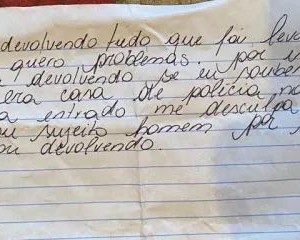 devolvendo tudo que foi leva
quero problemas. por i
devolvendo se eu soube
era casa de policia na
a entrado me desculpa
ou sujeito homem por
ou devolvendo.